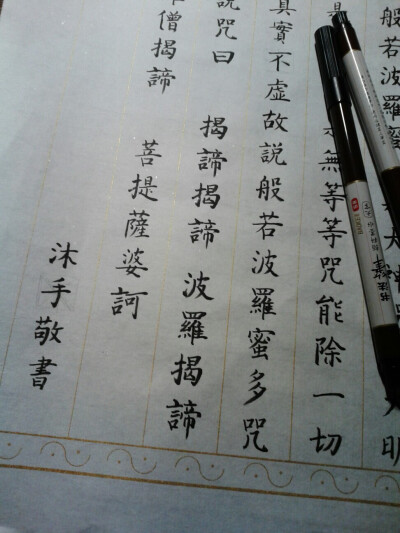 般若波羅蜜 大 明
是 無等等咒能除一切
真實不虛故說般若波羅蜜多咒
說咒曰 揭諦揭諦 波羅揭諦
僧揭諦 菩提薩婆訶
沐手敬書